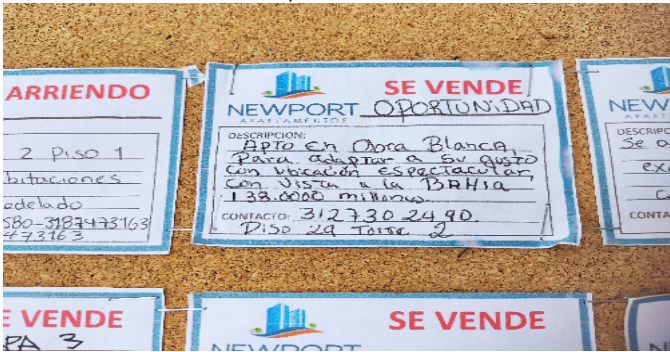 ARRIENDO
2 Piso 1
bitaciones
odelado
580-3187473163
473163
SE VENDE
NEWPORT OPORTUNIDAD
APARTAMENTOS
DESCRIPCION:
Apto en Obra Blanca,
Para adaptar a su gusto
con ubicación espectacular,
con vista a la BAHIA
138.0000 millones.
CONTACTO: 312730 2490.
Piso 29 Torre 2
NEW
APART
DESCRIPC
Se a
ex
CONTA
E VENDE
PA 3
SE VENDE
NEWPORT